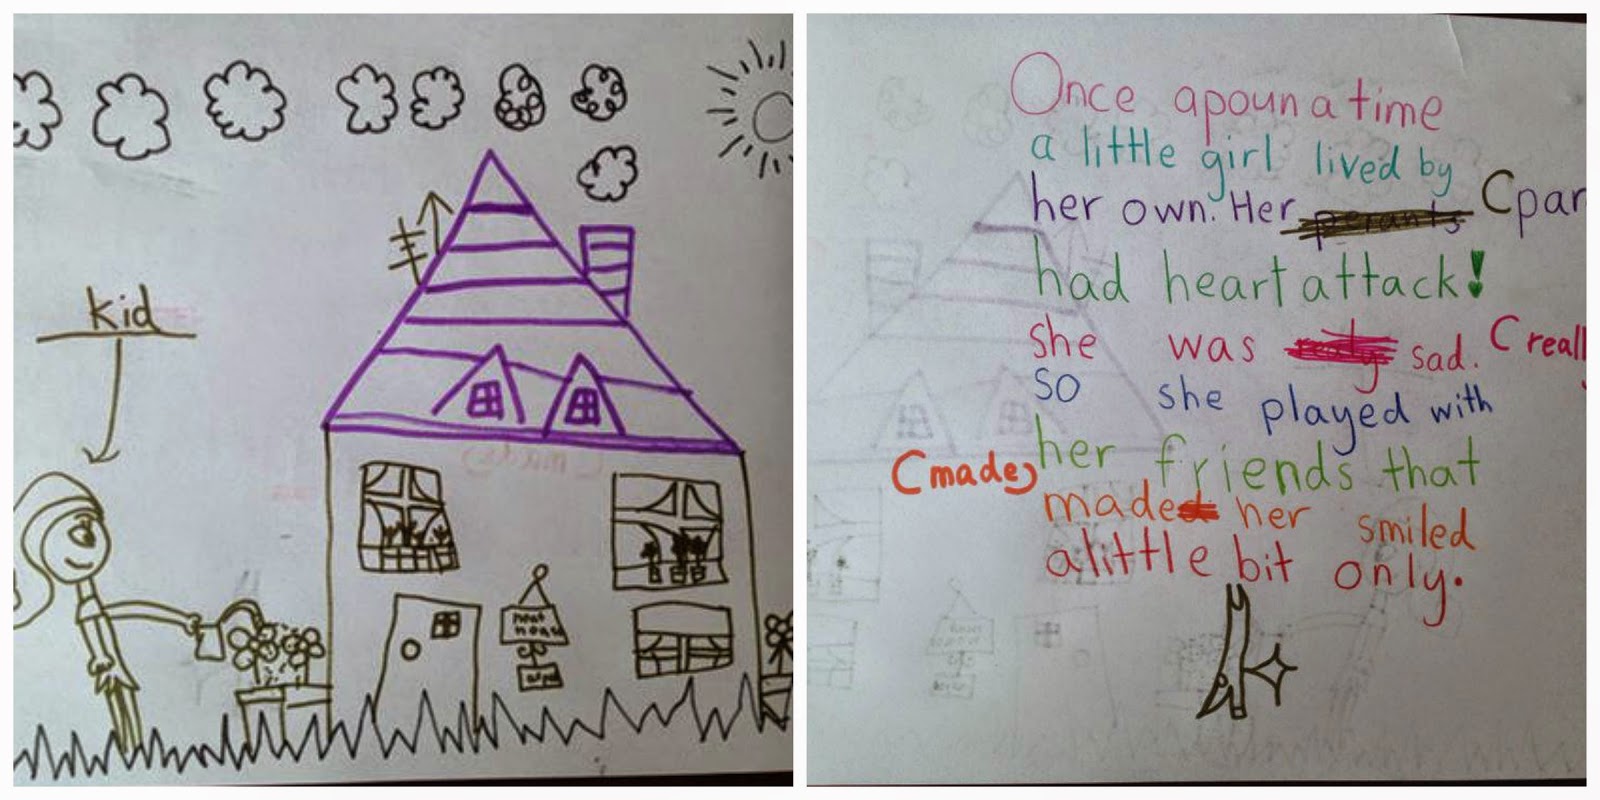 kid
Once apoun a time
a little girl lived by
her own. Her perants Cpar
had heart attack!
she was sad. Creall
so she played with
her friends that
Cmade)
made her smiled
a little bit only.